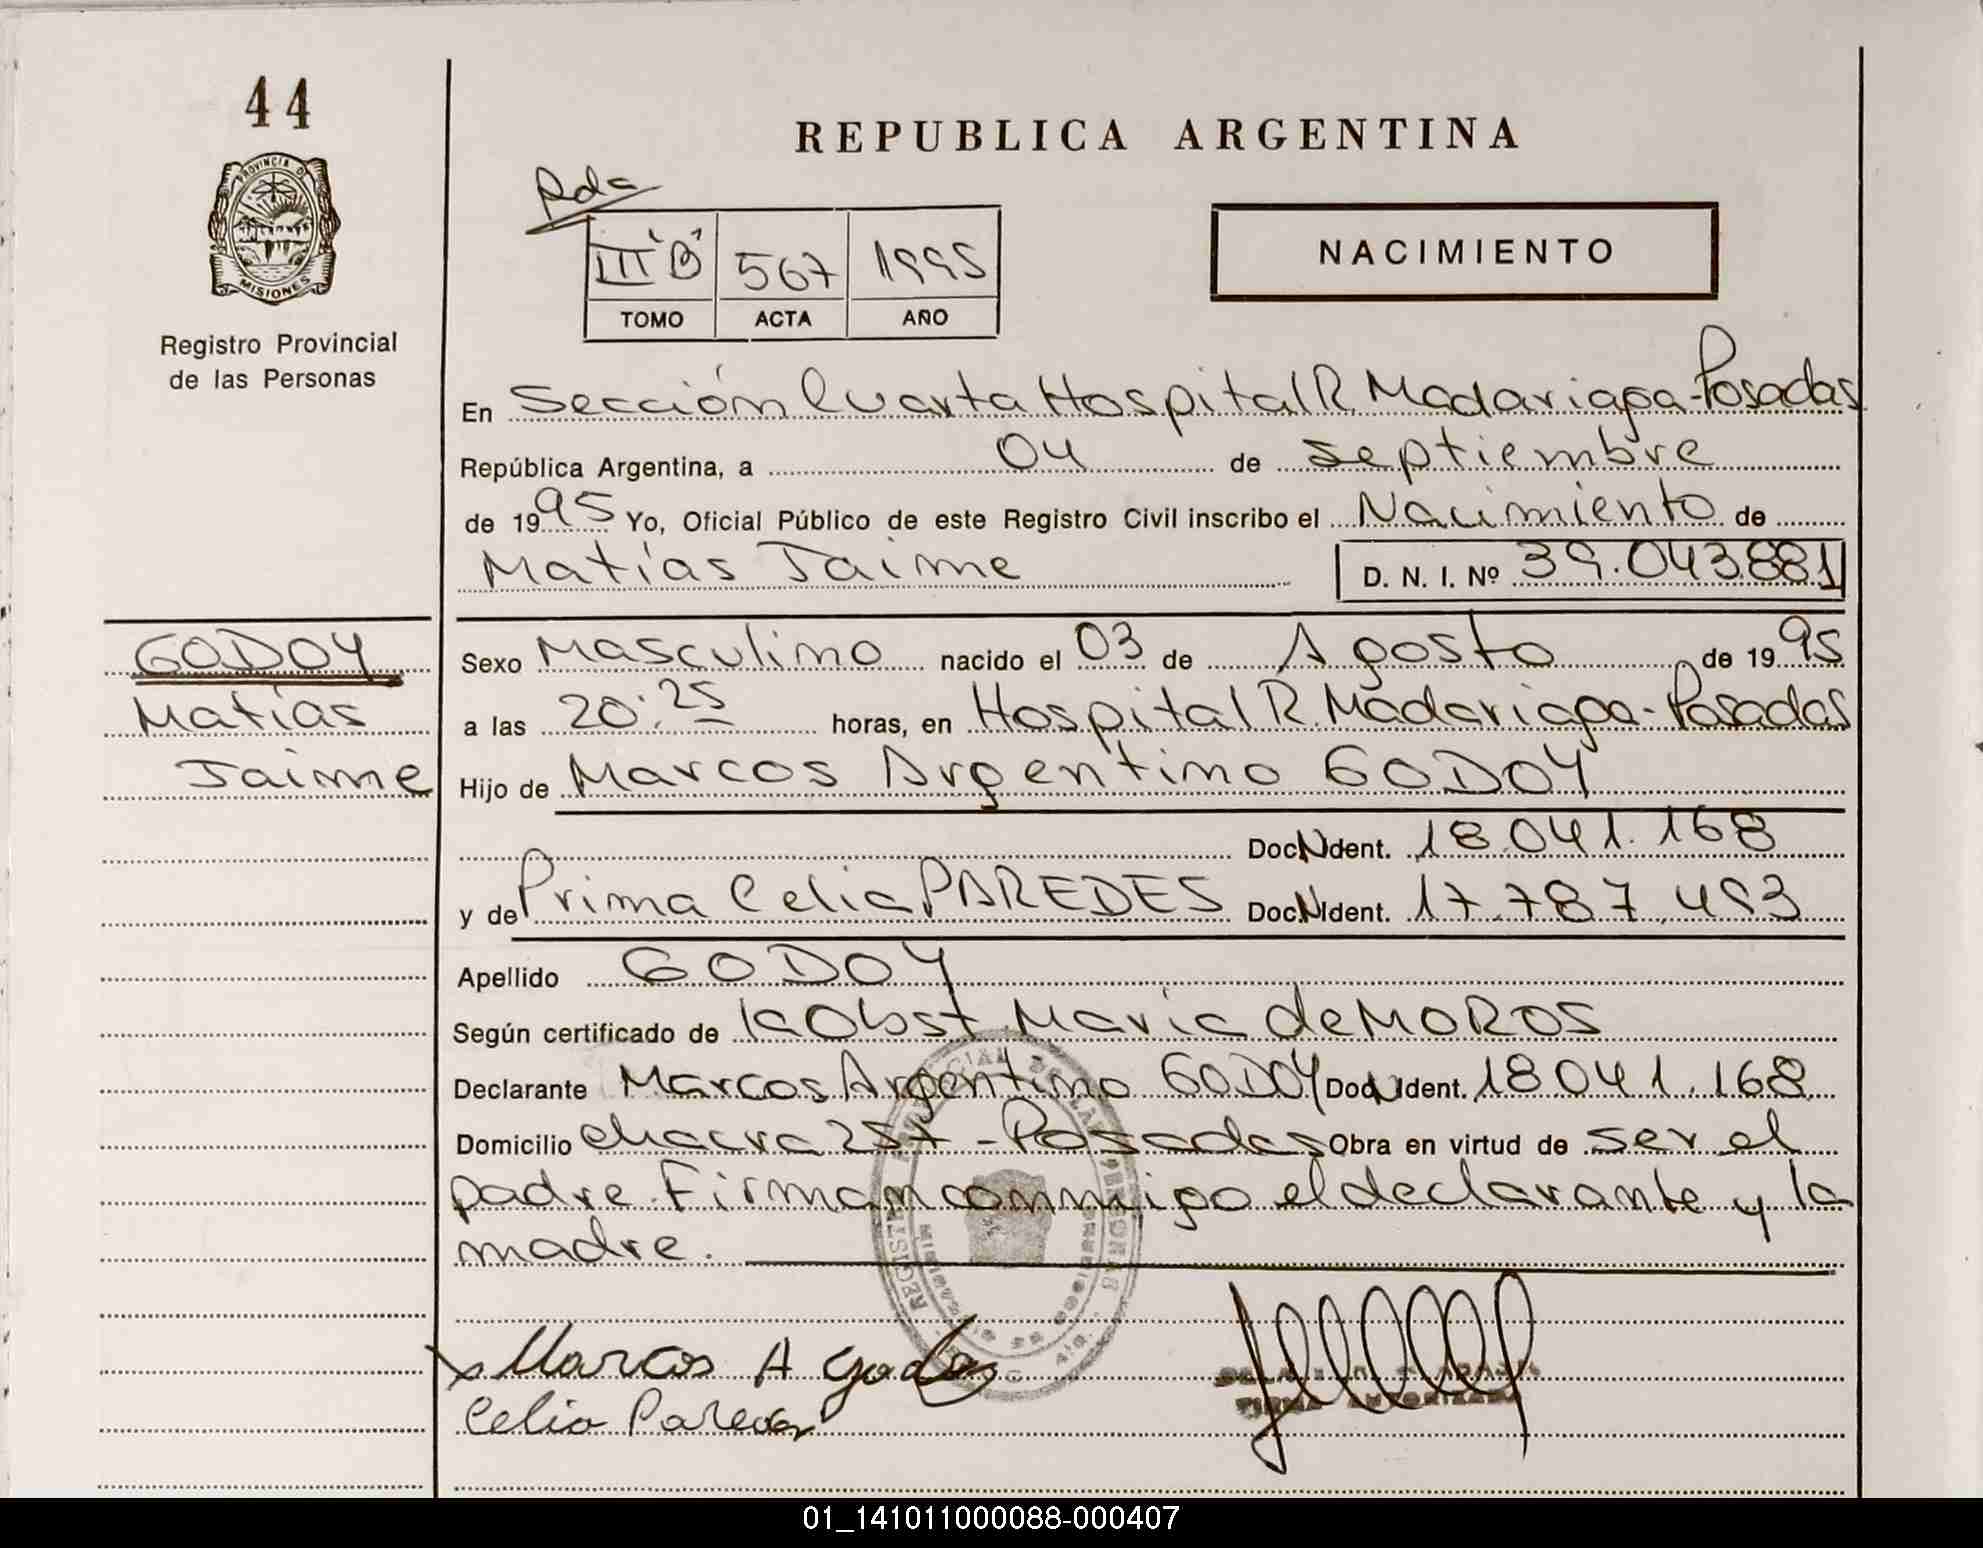 44
PROVINCIA DE
MISIONES
Registro Provincial
de las Personas
REPUBLICA ARGENTINA
Rda
III "B" 567 1995
TOMO ACTA AÑO
NACIMIENTO
En Sección Cuarta Hospital R. Madariaga - Posadas
República Argentina, a 04 de septiembre
de 1995 Yo, Oficial Público de este Registro Civil inscribo el Nacimiento de
Matías Jaime D. N. I. Nº 39.043.881
GODOY
Matías
Jaime
Sexo Masculino nacido el 03 de Agosto de 1995
a las 20:25 horas, en Hospital R. Madariaga - Posadas
Hijo de Marcos Argentino GODOY
Doc. N Ident. 18.041.168
y de Prima Celia PAREDES Doc. N Ident. 17.787.493
Apellido GODOY
Según certificado de la Obst María de MOROS
Declarante Marcos Argentino GODOY Doc. N Ident. 18.041.168
Domicilio chacra 257 - Posadas Obra en virtud de ser el
padre. Firman conmigo el declarante y la
madre.
Marcos A Godoy
Celia Paredes
FIRMA AUTORIZADA
01_141011000088-000407